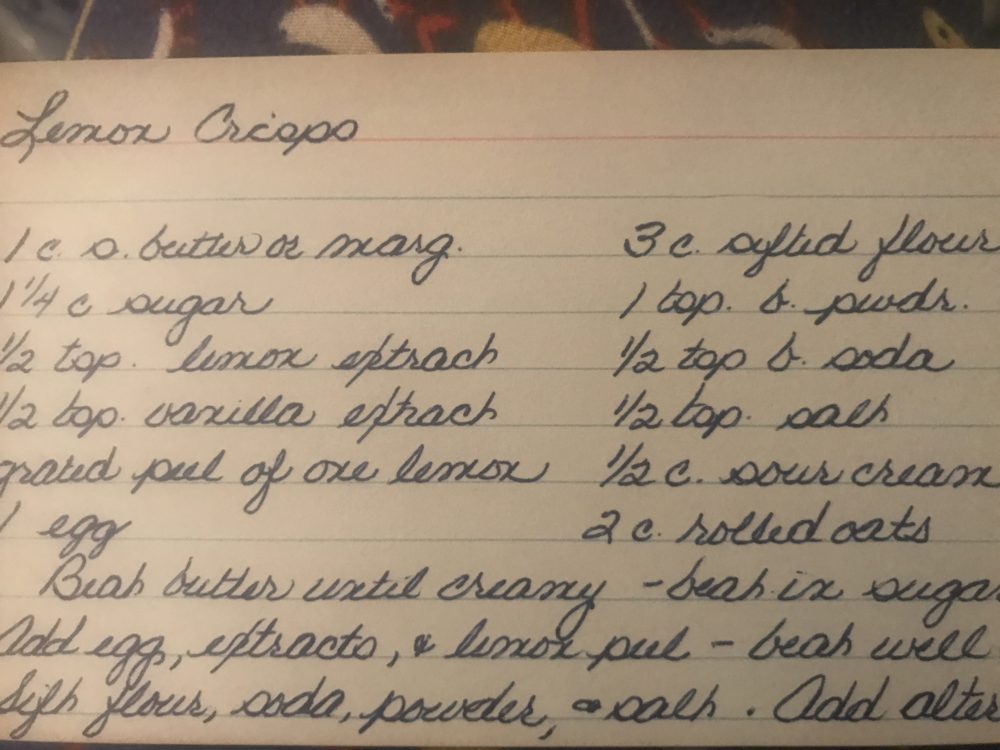 Lemon Crisps
1 c. s. butter or marg. 3 c. sifted flour
1 1/4 c sugar 1 tsp. b. pwdr.
1/2 tsp. lemon extract 1/2 tsp b. soda
1/2 tsp. vanilla extract 1/2 tsp. salt
grated peel of one lemon 1/2 c. sour cream
1 egg 2 c. rolled oats
Beat butter until creamy - beat in sugar
Add egg, extracts, & lemon peel - beat well
Sift flour, soda, powder, & salt. Add alter